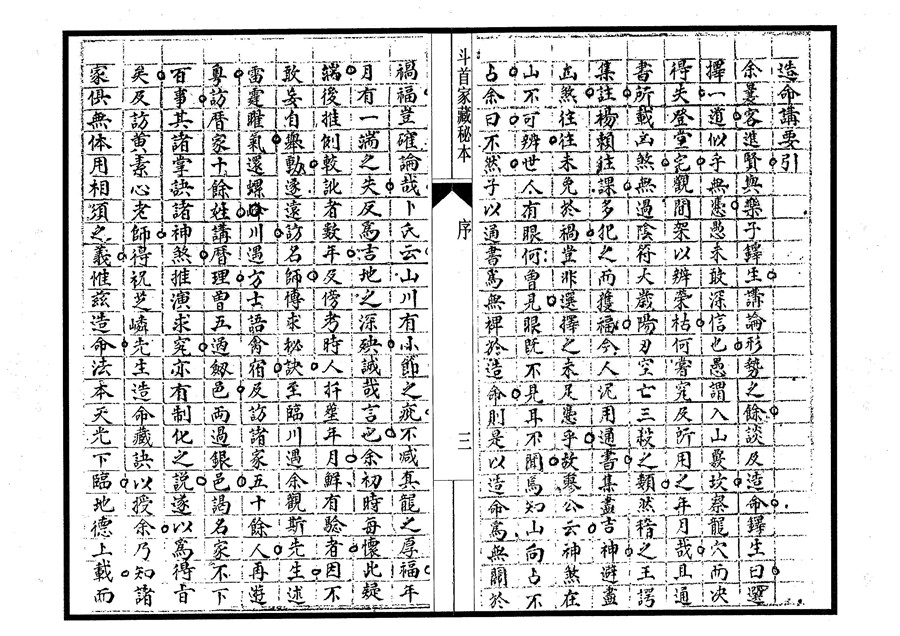 造命講要引
余曩客進賢與樂子鐸生講論形勢之餘談及造命鐸生曰選
擇一道似乎無憑愚未敢深信也愚謂入山尋坎察龍穴而決
得失登堂宅觀間架以辨榮枯何嘗究及所用之年月哉且通
書所載凶煞無過陰符大歲陽刃空亡三殺之類然稽之王諤
集註楊賴往課多犯之而獲福今人泥用通書集盡吉神避盡
凶煞往往未免於禍豈非選擇之未足憑乎故琴公云神煞在
山不可辨世人有眼何曾見眼既不見耳不聞焉知山向占不
占余曰不然子以通書爲無裨於造命則是以造命爲無關於
斗首家藏秘本
序
二
禍福豈確論哉卜氏云山川有小節之疵不減真龍之厚福年
月有一端之失反爲吉地之深殃誠哉言也余初時每懷此疑
端後推刻較訛者數年及傍考時人扦塟年月鮮有驗者因不
敢妄自舉動遂遠訪名師博求秘訣至臨川遇余觀斯先生述
雷霆睢氣還螺峰川遇方士語禽宿及訪諸家五十餘人再遊
粵訪曆家十餘姓講曆理曾五過劔邑兩過銀邑謁名家不下
百事其諸掌訣諸神煞推演求究亦有制化之説遂以爲得旨
矣及訪黃素心老師得祝芝嶙先生造命藏訣以授余乃知諸
家俱無体用相須之義惟兹造命法本天光下臨地德上載而